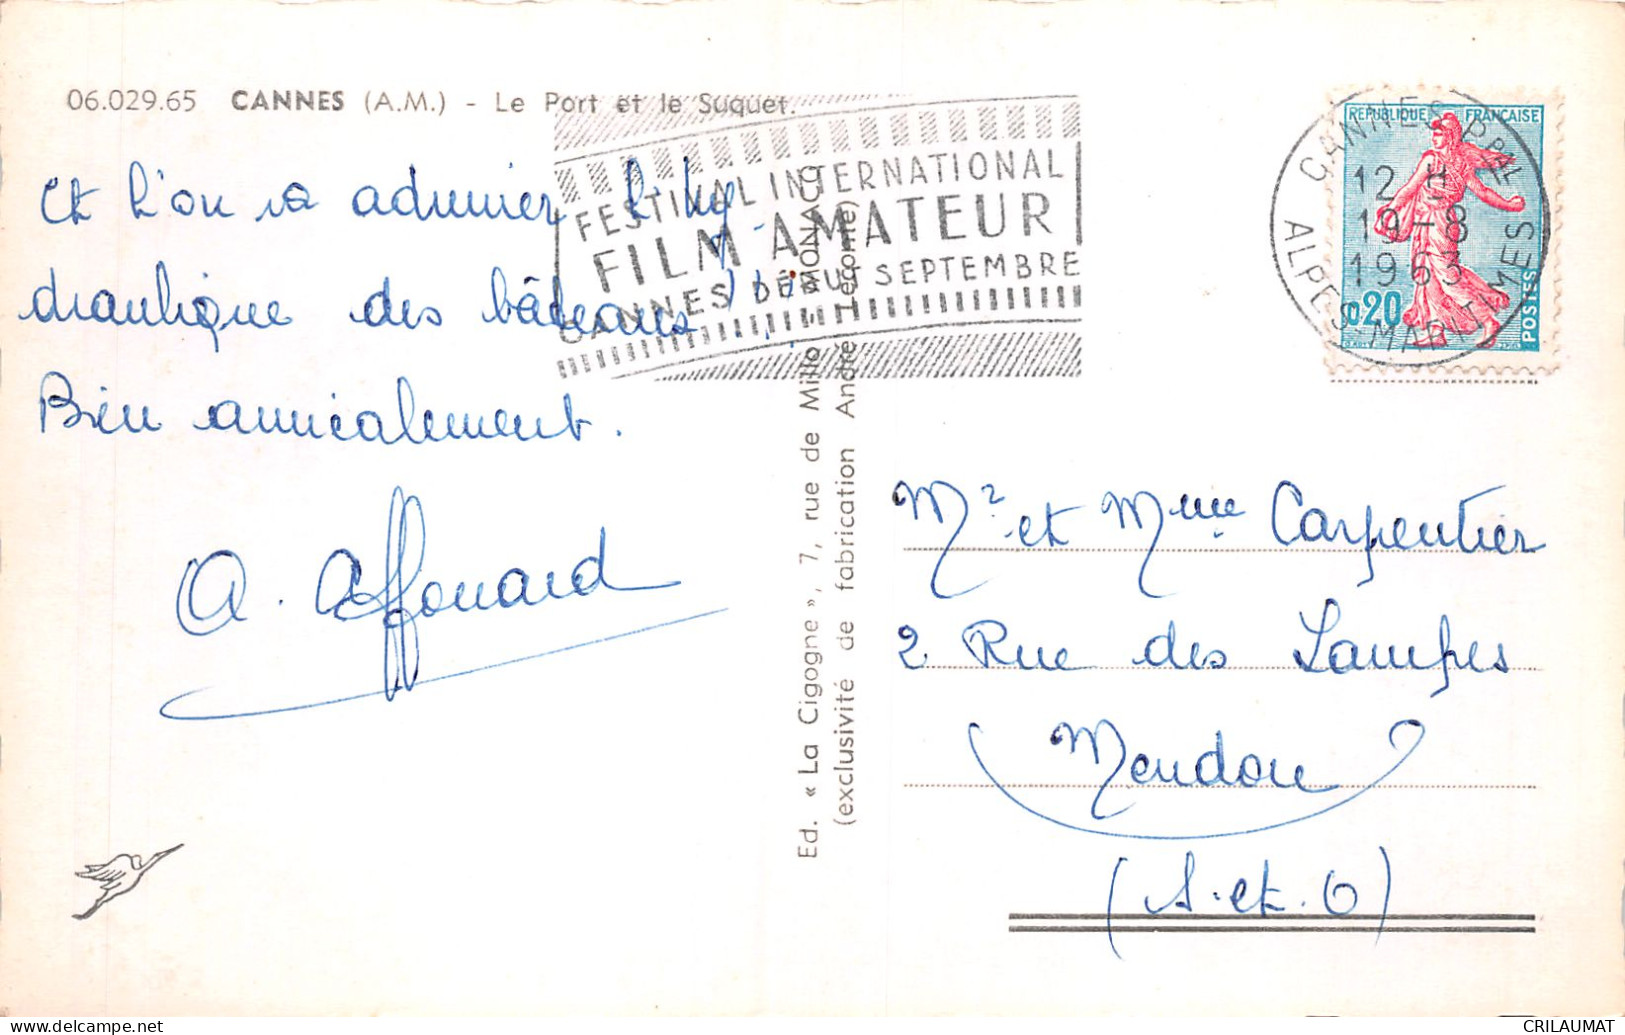 06.029.65 CANNES (A.M.) - Le Port et le Suquet.
Et l'on va admirer l'hy-
draulique des bateaux !...
Bien amicalement.
A. Affouard
FESTIVAL INTERNATIONAL
FILM AMATEUR
CANNES DÉBUT SEPTEMBRE
Ed. « La Cigogne », 7, rue de Millo - MONACO
(exclusivité de fabrication André Leconte)
CANNES PPAL
12 H
19-8
1963
ALPES-MARITIMES
REPUBLIQUE FRANÇAISE
0,20
POSTES
Mr et Mme Carpentier
2 Rue des Lampes
Meudon
(S.et.O)
CRILAUMAT